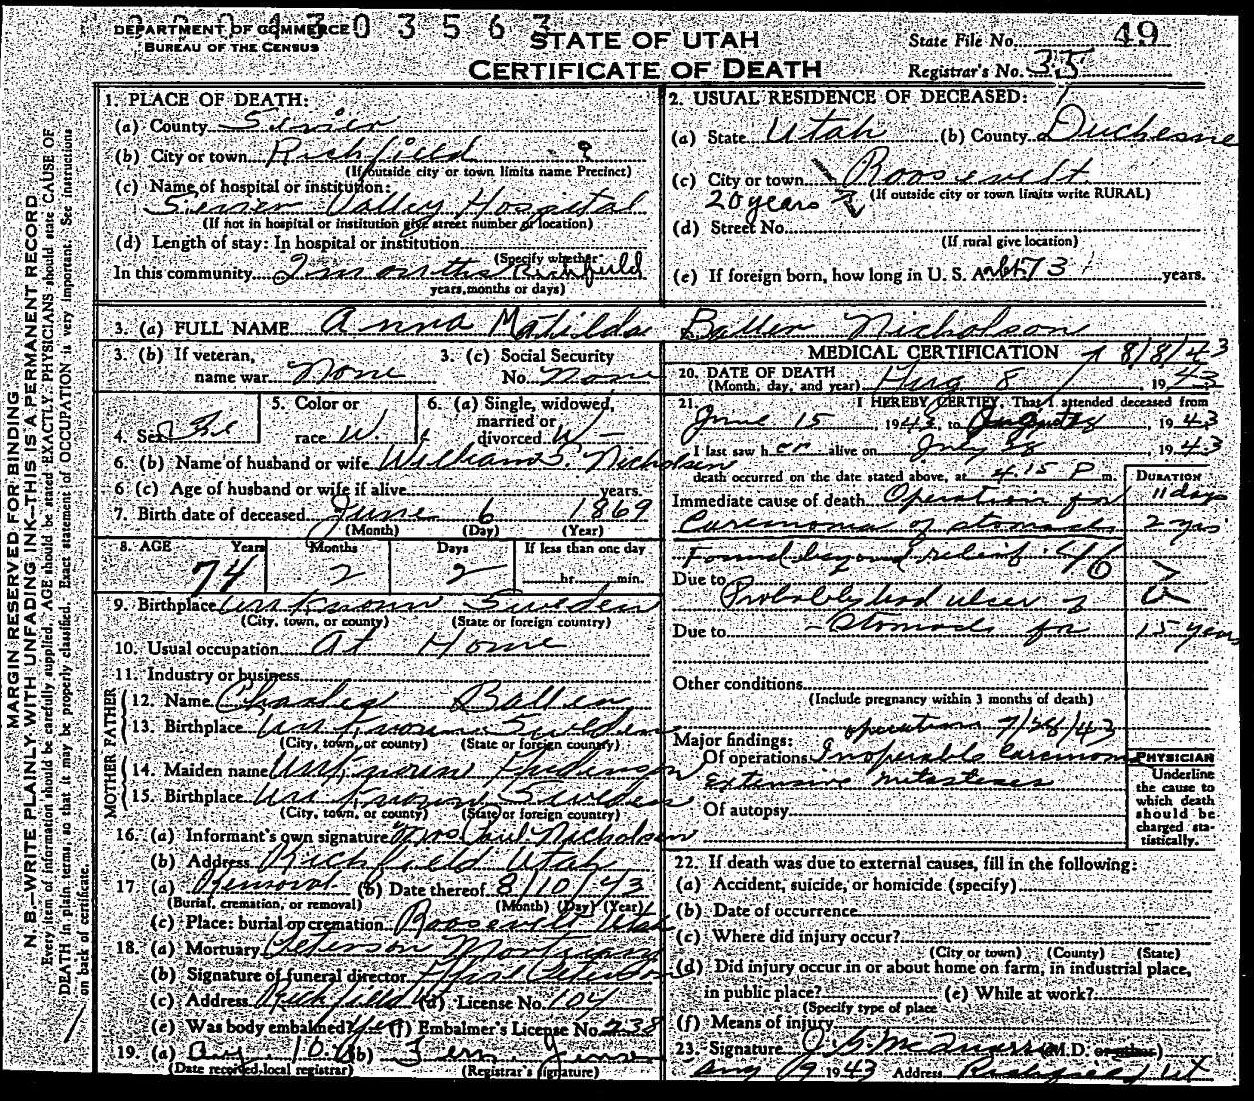 2 0 0 4 3 0 3 5 6 3
DEPARTMENT OF COMMERCE
BUREAU OF THE CENSUS
STATE OF UTAH
CERTIFICATE OF DEATH
State File No. 49
Registrar's No. 35
MARGIN RESERVED FOR BINDING
N. B.—WRITE PLAINLY WITH UNFADING INK—THIS IS A PERMANENT RECORD
Every item of information should be carefully supplied. AGE should be stated EXACTLY. PHYSICIANS should state CAUSE OF
DEATH in plain terms, so that it may be properly classified. Exact statement of OCCUPATION is very important. See instructions
on back of certificate.
1. PLACE OF DEATH:
(a) County Sevier
(b) City or town Richfield
(If outside city or town limits name Precinct)
(c) Name of hospital or institution:
Sevier Valley Hospital
(If not in hospital or institution give street number or location)
(d) Length of stay: In hospital or institution
(Specify whether
In this community 2 months Richfield
years, months or days)
2. USUAL RESIDENCE OF DECEASED:
(a) State Utah (b) County Duchesne
(c) City or town Roosevelt
20 years (If outside city or town limits write RURAL)
(d) Street No.
(If rural give location)
(e) If foreign born, how long in U. S. A. abt 73 years.
3. (a) FULL NAME Anna Matilda Ballen Nicholson
3. (b) If veteran, name war None
3. (c) Social Security No. None
4. Sex Fe
5. Color or race W.
6. (a) Single, widowed, married or divorced W
6. (b) Name of husband or wife William S. Nicholson
6 (c) Age of husband or wife if alive years.
7. Birth date of deceased June 6 1869
(Month) (Day) (Year)
8. AGE Years Months Days If less than one day
74 2 2 hr. min.
9. Birthplace Unknown Sweden
(City, town, or county) (State or foreign country)
10. Usual occupation At Home
11. Industry or business
FATHER
12. Name Charles Ballen
13. Birthplace Unknown Sweden
(City, town, or county) (State or foreign country)
MOTHER
14. Maiden name Unknown
15. Birthplace Unknown Sweden
(City, town, or county) (State or foreign country)
16. (a) Informant's own signature Mrs Paul Nicholson
(b) Address Richfield Utah
17 (a) Removal (b) Date thereof 8/10/43
(Burial, cremation, or removal) (Month) (Day) (Year)
(c) Place: burial or cremation Roosevelt Utah
18. (a) Mortuary Peterson Mortuary
(b) Signature of funeral director Peterson
(c) Address Richfield (d) License No. 104
(e) Was body embalmed? Yes (f) Embalmer's License No. 238
19. (a) Aug 10 (b) Fern Jensen
(Date received local registrar) (Registrar's signature)
MEDICAL CERTIFICATION 8/8/43
20. DATE OF DEATH
(Month, day, and year) Aug 8, 1943
21. I HEREBY CERTIFY, That I attended deceased from
June 15, 1943, to August 8, 1943
I last saw h er alive on July 28 1943
death occurred on the date stated above, at 4:15 P m.
DURATION
Immediate cause of death Operation for 11 days
Carcinoma of stomach 2 yrs
Found beyond relief. 46
Due to Probably had ulcer of
Due to stomach for 15 years
Other conditions
(Include pregnancy within 3 months of death)
operation 7/28/43
Major findings:
Of operations Inoperable Carcinoma
Extensive metastases
Of autopsy
PHYSICIAN
Underline
the cause to
which death
should be
charged sta-
tistically.
22. If death was due to external causes, fill in the following:
(a) Accident, suicide, or homicide (specify)
(b) Date of occurrence
(c) Where did injury occur?
(City or town) (County) (State)
(d) Did injury occur in or about home on farm, in industrial place,
in public place? (e) While at work?
(Specify type of place
(f) Means of injury
23 Signature (M.D. or other)
Aug 9 1943 Address Richfield Ut